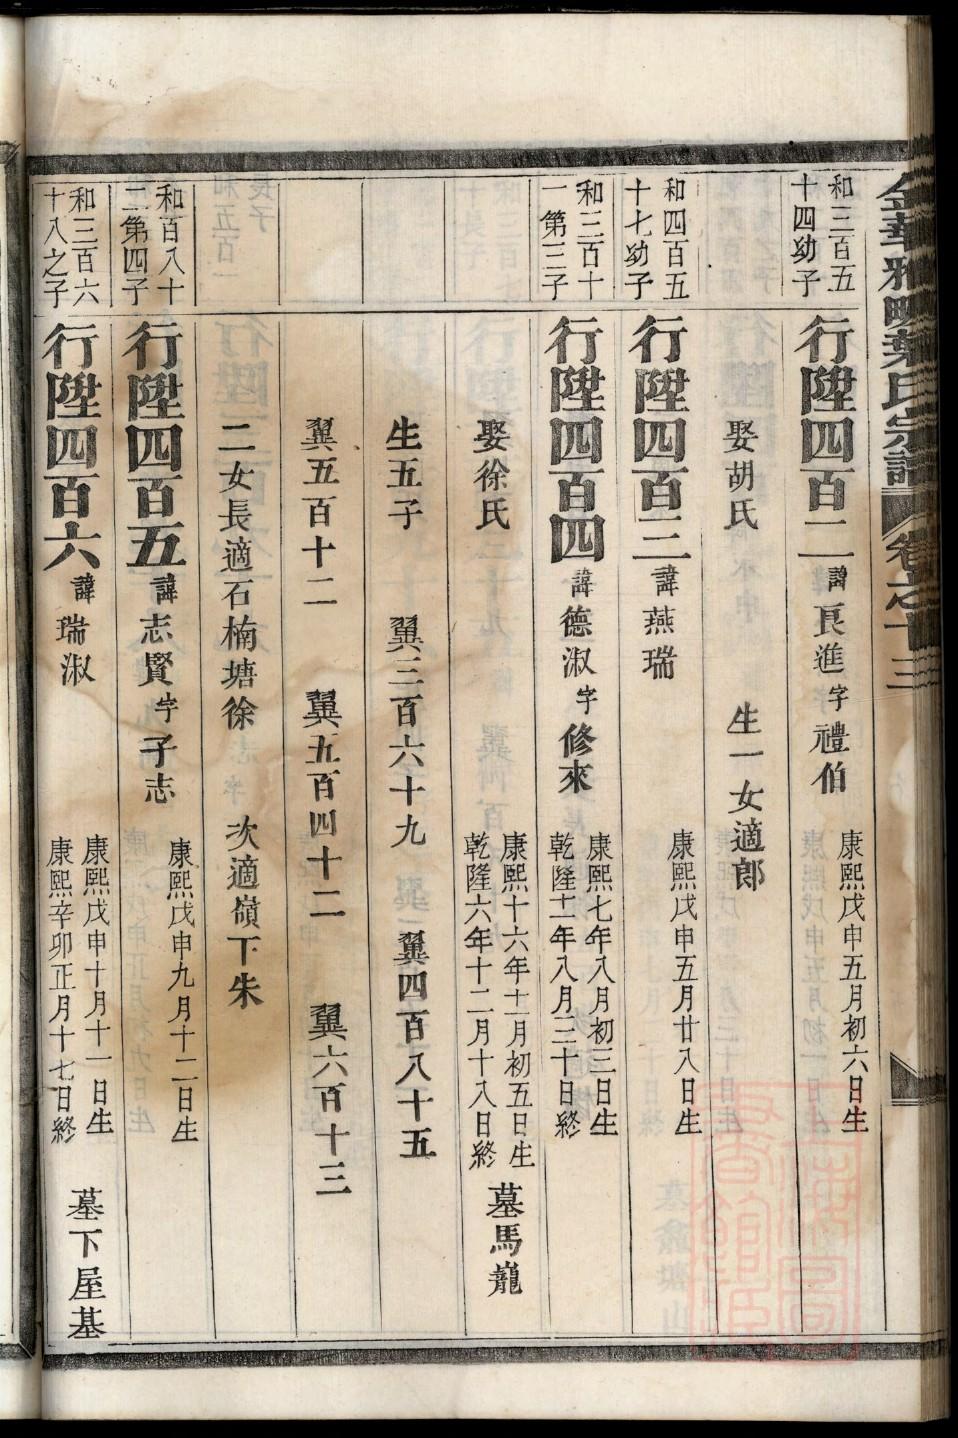 金華雅畈葉氏宗譜 卷之十三
和三百五十四幼子
行陞四百二 諱良進 字禮伯 康熙戊申五月初六日生
娶胡氏 生一女適郎
和四百五十七幼子
行陞四百三 諱燕瑞 康熙戊申五月廿八日生
和三百十一第三子
行陞四百四 諱德淑 字修來 康熙七年八月初三日生
乾隆十一年八月三十日終
娶徐氏 康熙十六年十一月初五日生
乾隆六年十二月十八日終 墓馬巃
生五子 翼三百六十九 翼四百八十五
翼五百十二 翼五百四十二 翼六百十三
二女長適石楠塘徐 次適嶺下朱
和百八十二第四子
行陞四百五 諱志賢 字子志 康熙戊申九月十二日生
和三百六十八之子
行陞四百六 諱瑞淑 康熙戊申十月十一日生
康熙辛卯正月十七日終 墓下屋基